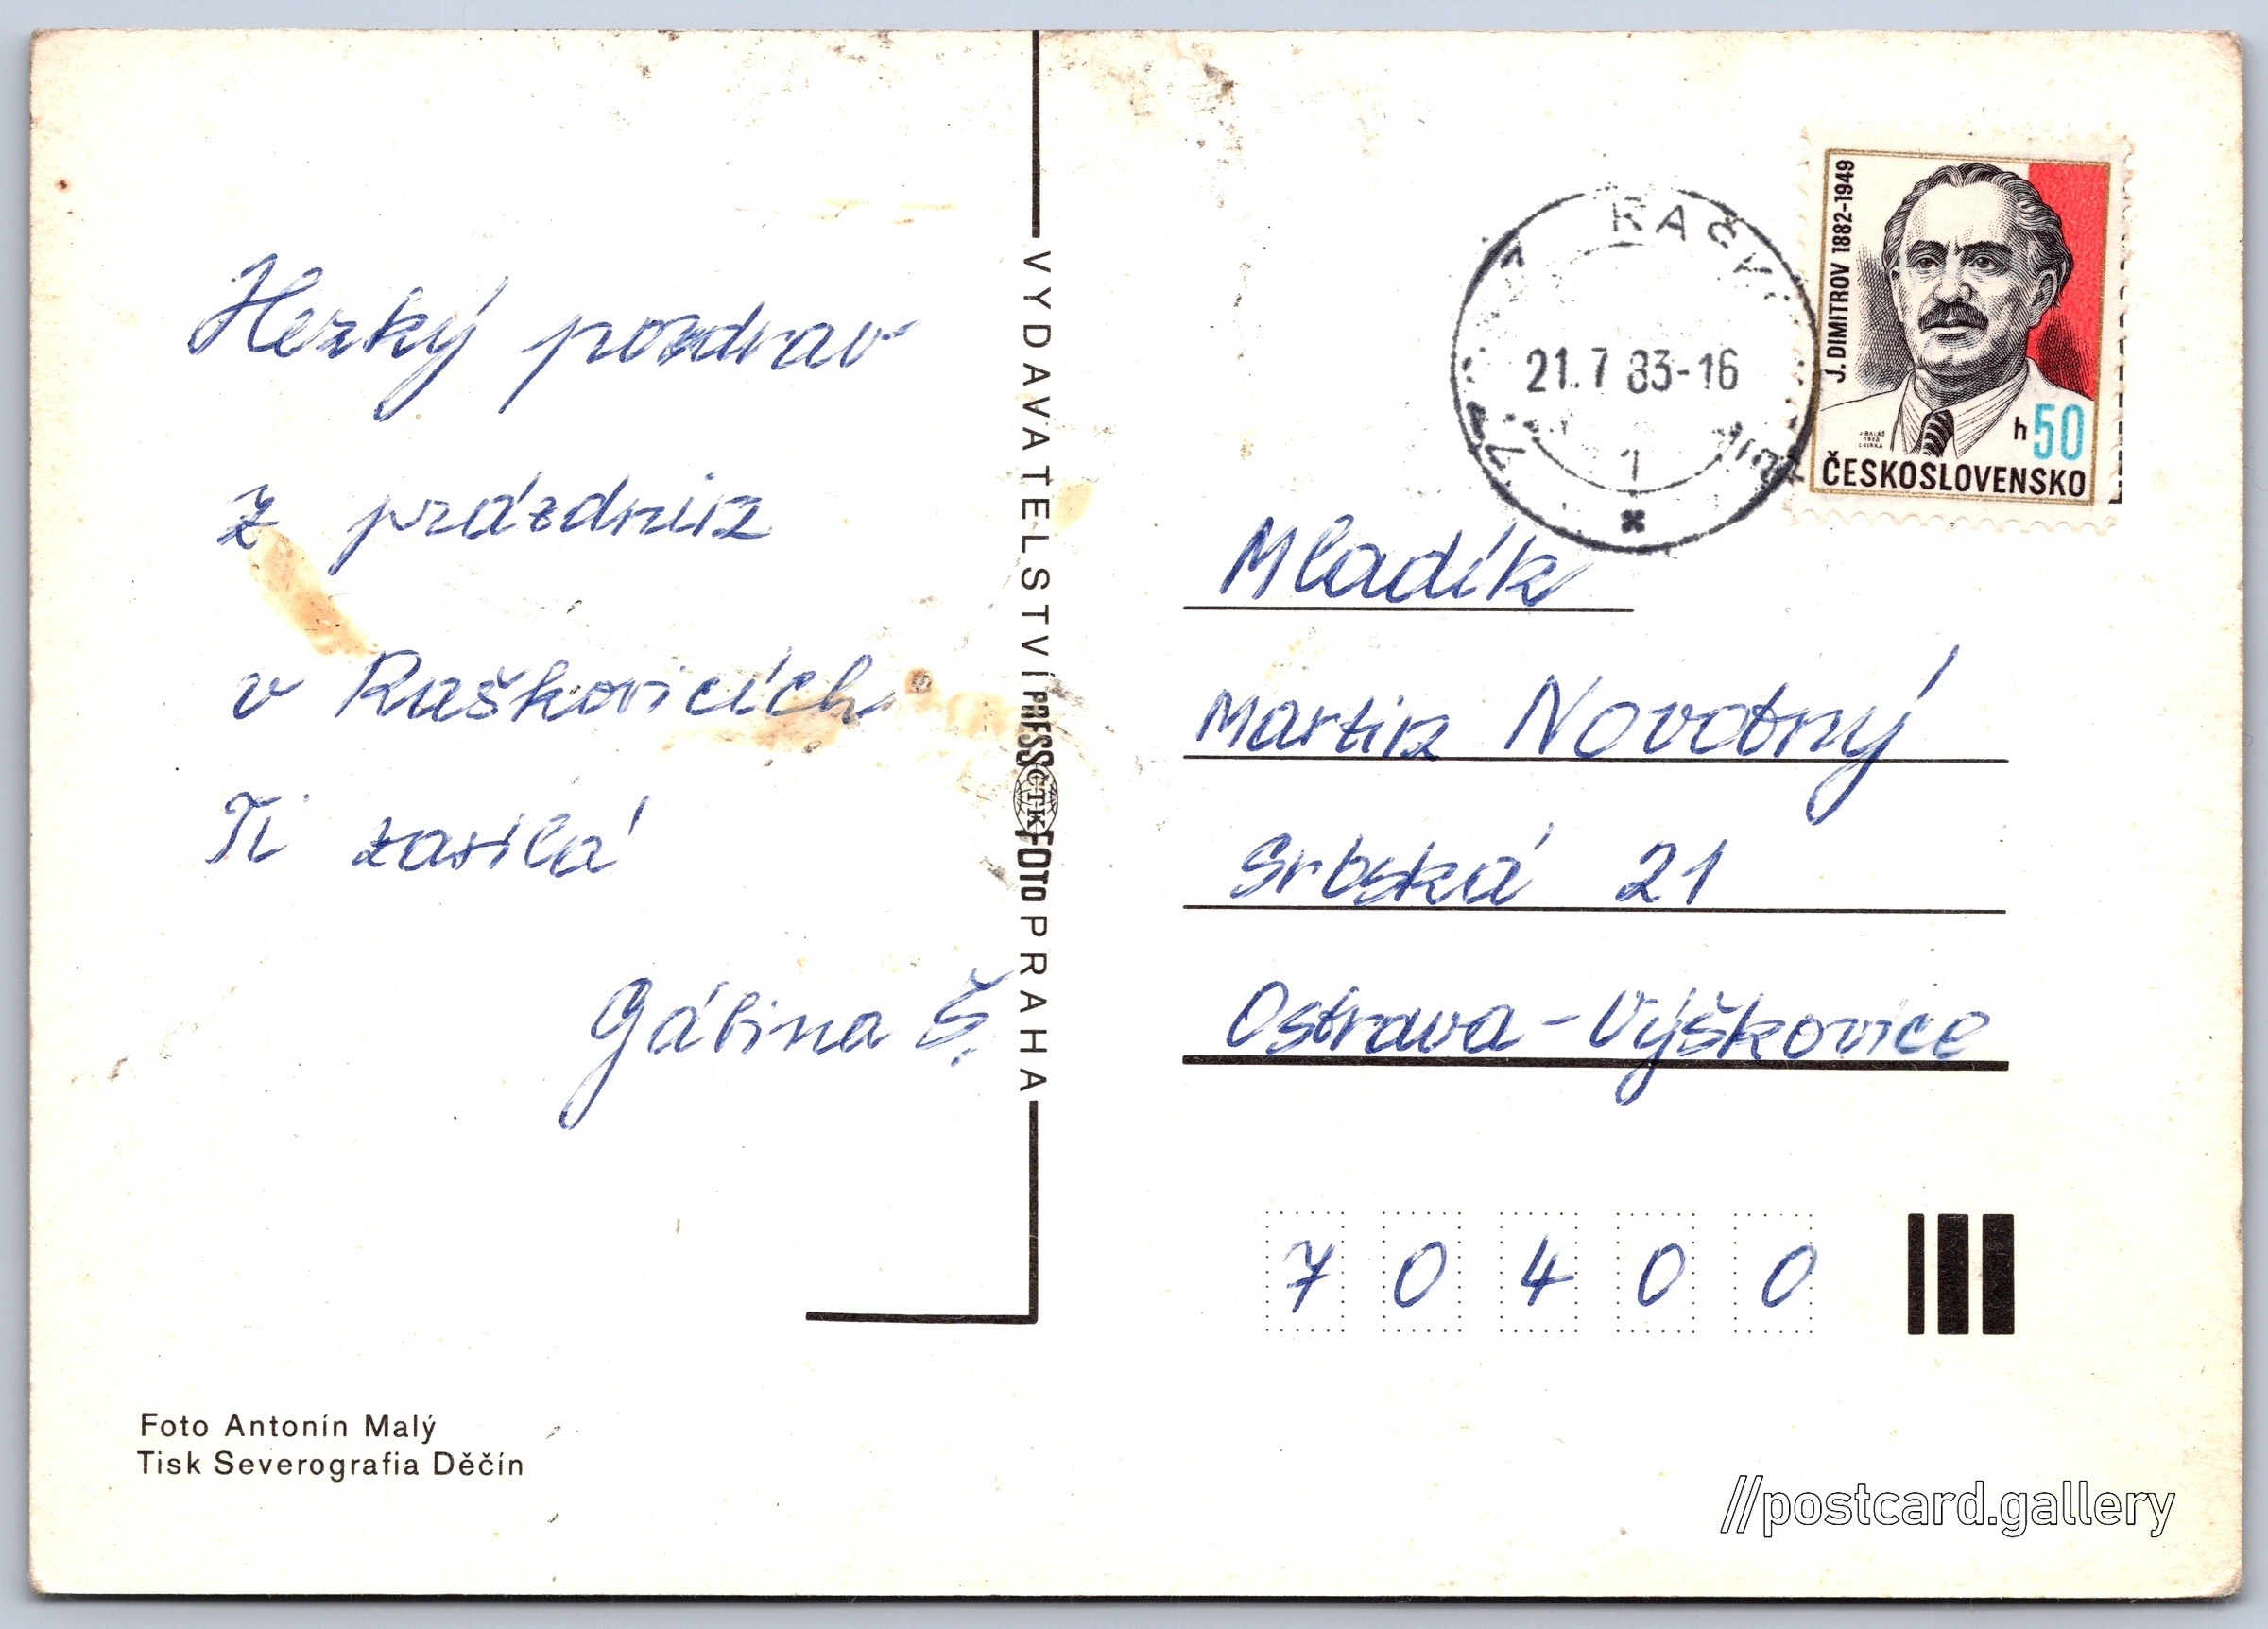 Hezký pozdrav
z prázdnin
v Raškovicích
Ti zasílá
Gábina Š.
Foto Antonín Malý
Tisk Severografia Děčín
VYDAVATELSTVÍ PRESS ČTK FOTO PRAHA
21.7 83-16
1
J. DIMITROV 1882-1949
h 50
ČESKOSLOVENSKO
Mladík
Martin Novotný
Srbská 21
Ostrava - Výškovice
7 0 4 0 0
//postcard.gallery